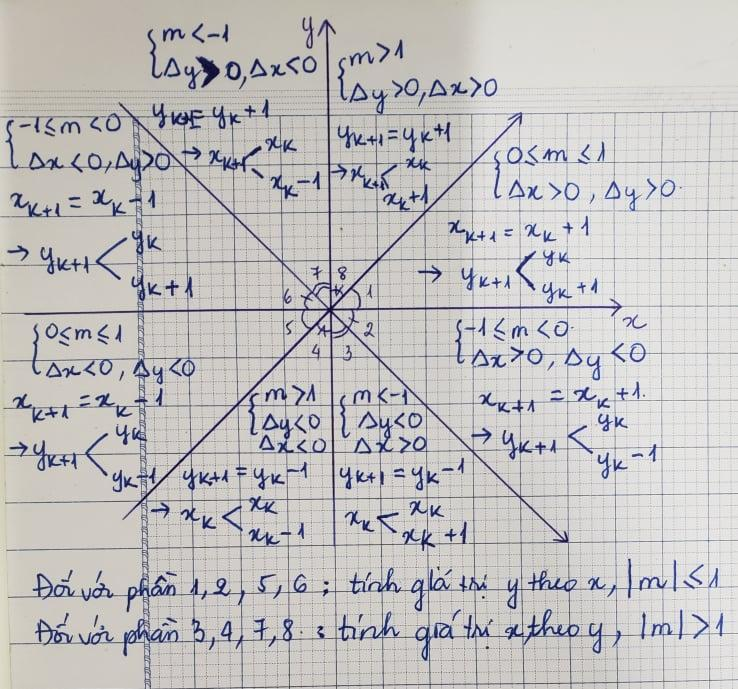 y
{ m < -1
Δy > 0, Δx < 0
y_{k+1} = y_k + 1
→ x_{k+1} < x_k
x_k - 1
{ m > 1
Δy > 0, Δx > 0
y_{k+1} = y_k + 1
→ x_{k+1} < x_k
x_k + 1
{ -1 ≤ m < 0
Δx < 0, Δy > 0
x_{k+1} = x_k - 1
→ y_{k+1} < y_k
y_k + 1
{ 0 ≤ m ≤ 1
Δx > 0, Δy > 0.
x_{k+1} = x_k + 1
→ y_{k+1} < y_k
y_k + 1
7 8
6 1
5 2
4 3
x
{ 0 ≤ m ≤ 1
Δx < 0, Δy < 0
x_{k+1} = x_k - 1
→ y_{k+1} < y_k
y_k - 1
{ -1 ≤ m < 0.
Δx > 0, Δy < 0
x_{k+1} = x_k + 1.
→ y_{k+1} < y_k
y_k - 1
{ m > 1
Δy < 0
Δx < 0
y_{k+1} = y_k - 1
→ x_k < x_k
x_k - 1
{ m < -1
Δy < 0
Δx > 0
y_{k+1} = y_k - 1
x_k < x_k
x_k + 1
Đối với phần 1, 2, 5, 6 ; tính giá trị y theo x, |m| ≤ 1
Đối với phần 3, 4, 7, 8. : tính giá trị x theo y, |m| > 1